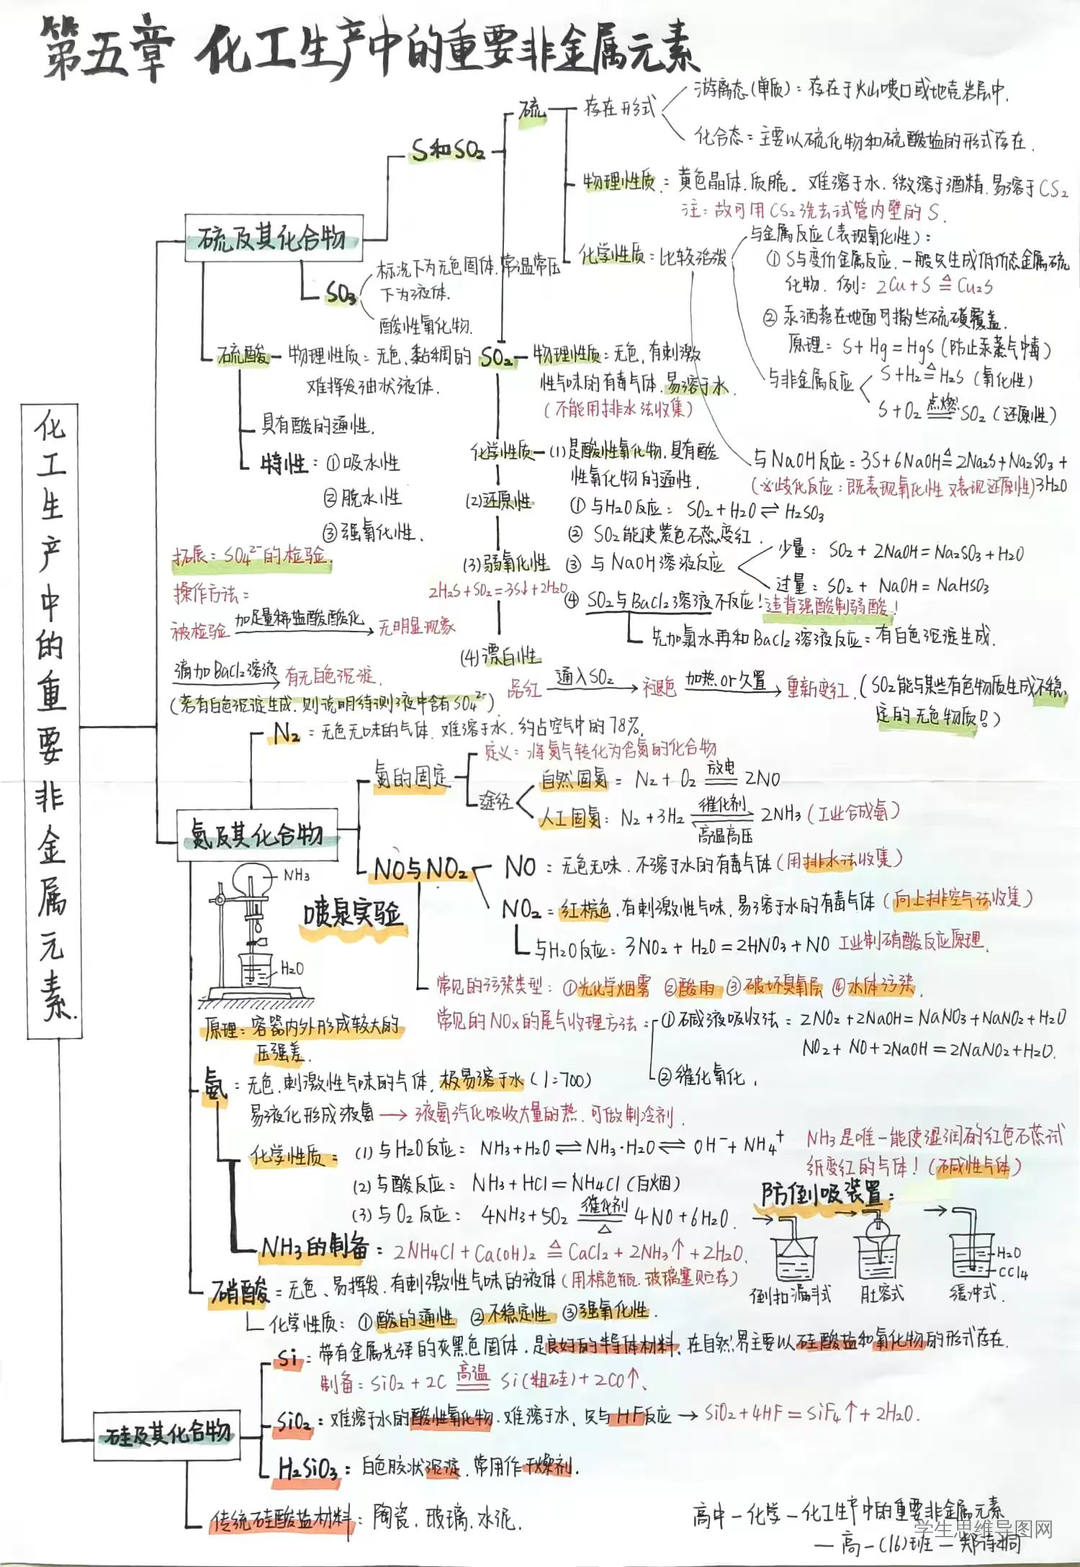 第五章 化工生产中的重要非金属元素
化工生产中的重要非金属元素.
硫及其化合物
S和SO₂
硫
存在形式
游离态(单质): 存在于火山喷口或地壳岩层中.
化合态: 主要以硫化物和硫酸盐的形式存在.
物理性质: 黄色晶体. 质脆。难溶于水. 微溶于酒精. 易溶于CS₂
注: 故可用CS₂洗去试管内壁的S.
化学性质: 比较活泼
与金属反应(表现氧化性):
①S与变价金属反应. 一般只生成低价态金属硫
化物. 例: 2Cu+S ≜ Cu₂S
②汞洒落在地面可撒些硫磺覆盖.
原理: S+Hg=HgS (防止汞蒸气中毒)
与非金属反应
S+H₂ ≜ H₂S (氧化性)
S+O₂ 点燃 SO₂ (还原性)
与NaOH反应: 3S+6NaOH ≜ 2Na₂S+Na₂SO₃+
3H₂O
(歧化反应: 既表现氧化性 又表现还原性)
SO₃
标况下为无色固体. 常温常压
下为液体.
酸性氧化物.
硫酸
物理性质: 无色. 黏稠的
难挥发油状液体.
具有酸的通性.
特性: ①吸水性
②脱水性
③强氧化性.
SO₂
物理性质: 无色. 有刺激
性气味的有毒气体. 易溶于水.
(不能用排水法收集)
化学性质
(1)是酸性氧化物. 具有酸
性氧化物的通性.
① 与H₂O反应: SO₂+H₂O ⇌ H₂SO₃
② SO₂能使紫色石蕊变红.
③ 与NaOH溶液反应
少量: SO₂+2NaOH=Na₂SO₃+H₂O
过量: SO₂+NaOH=NaHSO₃
④ SO₂与BaCl₂溶液不反应! 违背强酸制弱酸!
先加氯水再和BaCl₂溶液反应: 有白色沉淀生成.
(2)还原性
(3)弱氧化性
2H₂S+SO₂=3S↓+2H₂O
(4)漂白性
品红 通入SO₂ 褪色 加热 or 久置 重新变红. (SO₂能与某些有色物质生成不稳
定的无色物质!)
拓展: SO₄²⁻的检验.
操作方法:
被检验 加足量稀盐酸酸化 无明显现象
滴加BaCl₂溶液 有无白色沉淀.
(若有白色沉淀生成. 则说明待测液中含有SO₄²⁻)
氮及其化合物
N₂: 无色无味的气体. 难溶于水. 约占空气中的78%.
氮的固定
定义: 将氮气转化为含氮的化合物
途径
自然固氮: N₂+O₂ 放电 2NO
人工固氮: N₂+3H₂ 催化剂 高温高压 2NH₃ (工业合成氨)
NO与NO₂
NO: 无色无味. 不溶于水的有毒气体 (用排水法收集)
NO₂: 红棕色. 有刺激性气味. 易溶于水的有毒气体 (向上排空气法收集)
与H₂O反应: 3NO₂+H₂O=2HNO₃+NO 工业制硝酸反应原理.
常见的污染类型: ①光化学烟雾 ②酸雨 ③破坏臭氧层 ④水体污染.
常见的NOx的尾气处理方法:
①碱液吸收法: 2NO₂+2NaOH=NaNO₃+NaNO₂+H₂O
NO₂+NO+2NaOH=2NaNO₂+H₂O.
②催化氧化.
喷泉实验
NH₃
H₂O
原理: 容器内外形成较大的
压强差.
氨: 无色. 刺激性气味的气体. 极易溶于水 (1:700)
易液化形成液氨 → 液氨汽化吸收大量的热. 可做制冷剂.
化学性质: (1)与H₂O反应: NH₃+H₂O ⇌ NH₃·H₂O ⇌ OH⁻+NH₄⁺
(2)与酸反应: NH₃+HCl=NH₄Cl (白烟)
(3)与O₂反应: 4NH₃+5O₂ 催化剂 △ 4NO+6H₂O.
NH₃是唯一能使湿润的红色石蕊试
纸变红的气体! (碱性气体)
NH₃的制备: 2NH₄Cl+Ca(OH)₂ ≜ CaCl₂+2NH₃↑+2H₂O.
防倒吸装置:
倒扣漏斗式
肚容式
缓冲式.
H₂O
CCl₄
硝酸: 无色、易挥发. 有刺激性气味的液体 (用棕色瓶. 玻璃塞贮存)
化学性质: ①酸的通性 ②不稳定性 ③强氧化性.
硅及其化合物
Si: 带有金属光泽的灰黑色固体. 是良好的半导体材料. 在自然界主要以硅酸盐和氧化物的形式存在.
制备: SiO₂+2C 高温 Si(粗硅)+2CO↑.
SiO₂: 难溶于水的酸性氧化物. 难溶于水. 只与HF反应 → SiO₂+4HF=SiF₄↑+2H₂O.
H₂SiO₃: 白色胶状沉淀. 常用作干燥剂.
传统硅酸盐材料: 陶瓷. 玻璃. 水泥.
高中—化学—化工生产中的重要非金属元素
学生思维导图网
—高一(16)班—郑诗桐